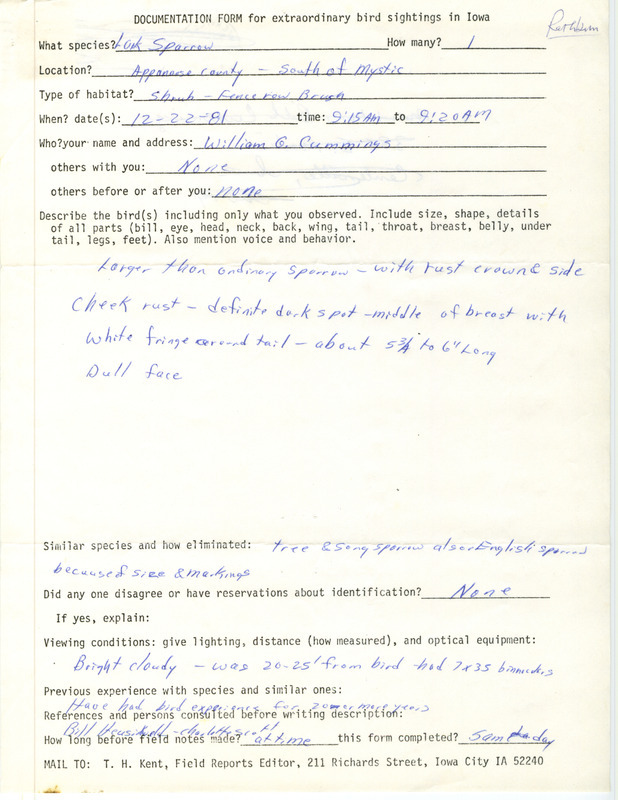 DOCUMENTATION FORM for extraordinary bird sightings in Iowa
What species? Lark Sparrow How many? 1
Location? Appanoose County - South of Mystic
Type of habitat? Shrub - Fence row Brush
When? date(s): 12-22-81 time: 9:15 AM to 9:20 AM
Who? your name and address: William G. Cummings
others with you: None
others before or after you: none
Describe the bird(s) including only what you observed. Include size, shape, details
of all parts (bill, eye, head, neck, back, wing, tail, throat, breast, belly, under
tail, legs, feet). Also mention voice and behavior.
Larger than ordinary sparrow - with rust crown & side
Cheek rust - definite dark spot - middle of breast with
White fringe around tail - about 5 3/4 to 6" Long
Dull face
Similar species and how eliminated: tree & song sparrow also English sparrow
because of size & markings
Did any one disagree or have reservations about identification? None
If yes, explain:
Viewing conditions: give lighting, distance (how measured), and optical equipment:
Bright cloudy - was 20-25' from bird - had 7x35 binoculars
Previous experience with species and similar ones:
Have had bird experience for 20 or more years
References and persons consulted before writing description:
Bill - Charlotte Scott
How long before field notes made? at time this form completed? Same day
MAIL TO: T. H. Kent, Field Reports Editor, 211 Richards Street, Iowa City IA 52240